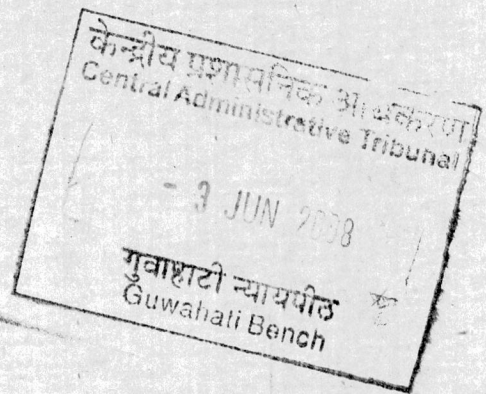 केन्द्रीय प्रशासनिक अधिकरण
Central Administrative Tribunal
- 3 JUN 2008
गुवाहाटी न्यायपीठ
Guwahati Bench